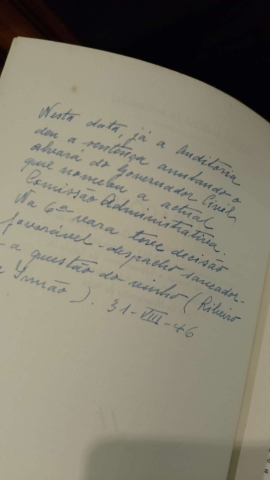 Nesta data, já a Auditoria
deu a sentença anulando o
alvará do Governador Civil
que nomeou a actual
Comissão Administrativa.
Na 6ª vara teve decisão
favorável - despacho saneador -
- a questão do vinho (Ribeiro
e Irmão). 31-VIII-46